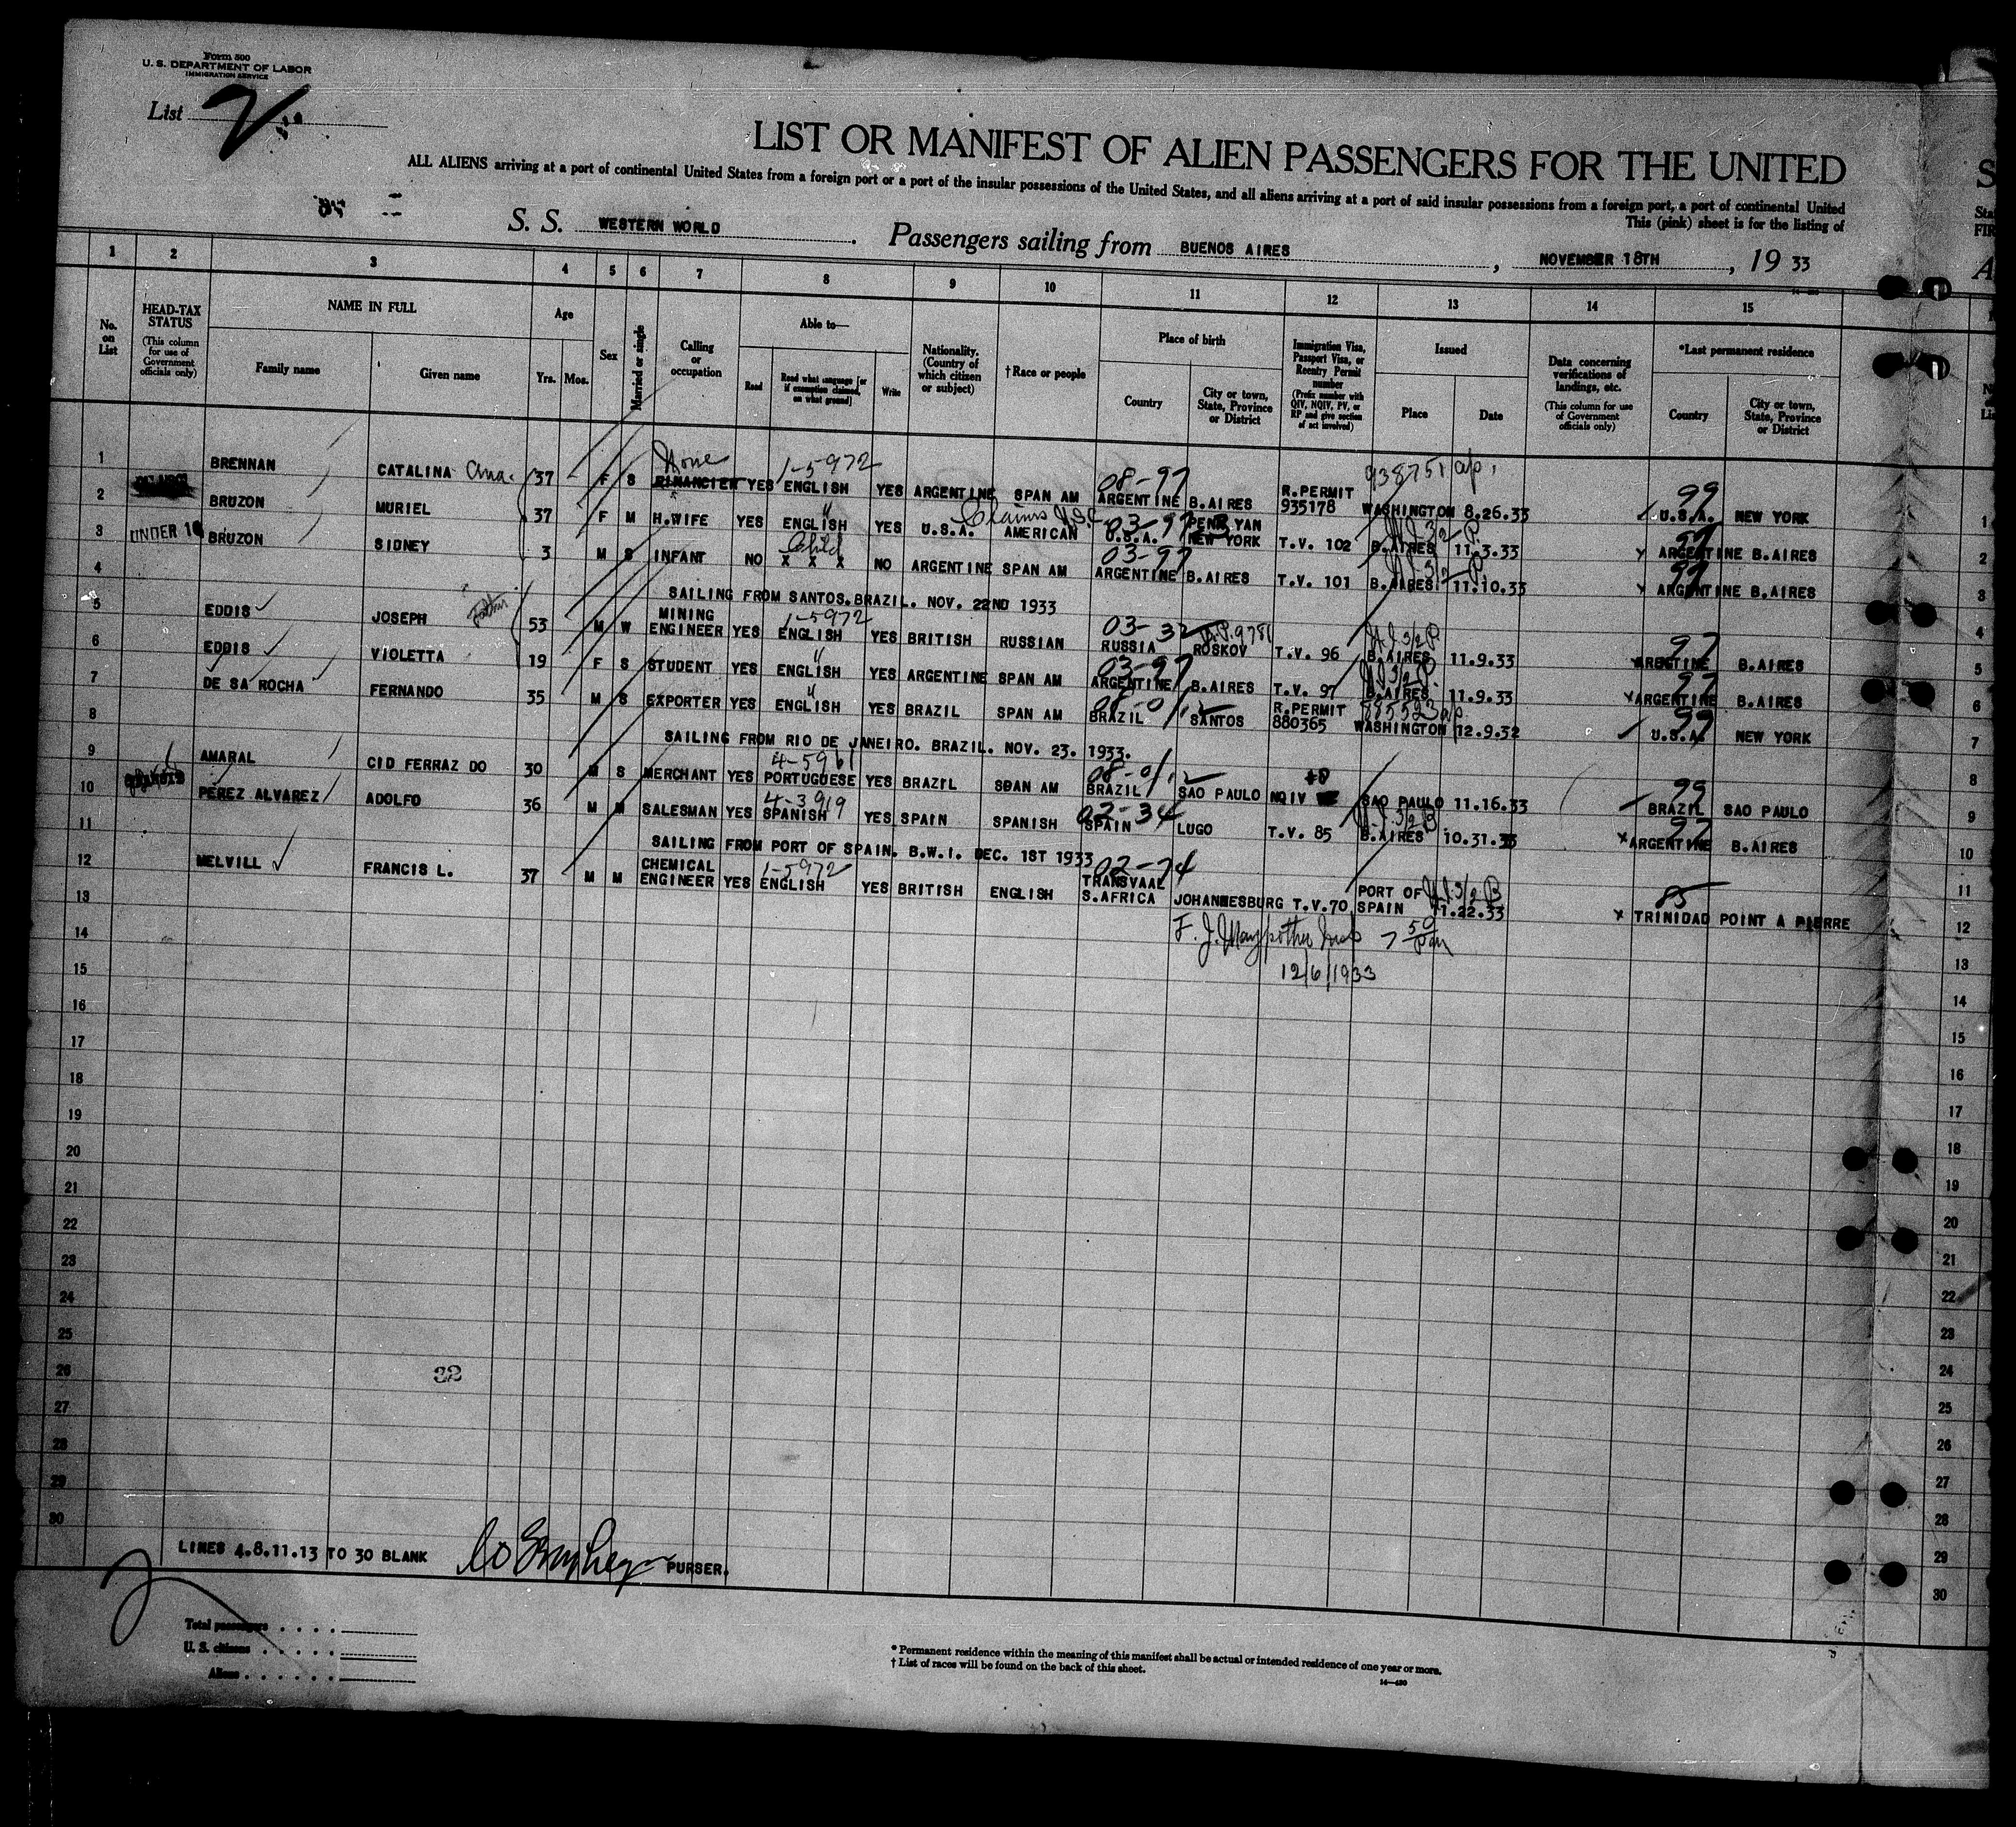 Form 500
U. S. DEPARTMENT OF LABOR
IMMIGRATION SERVICE
List 2
LIST OR MANIFEST OF ALIEN PASSENGERS FOR THE UNITED
ALL ALIENS arriving at a port of continental United States from a foreign port or a port of the insular possessions of the United States, and all aliens arriving at a port of said insular possessions from a foreign port, a port of continental United
This (pink) sheet is for the listing of
S. S. WESTERN WORLD. Passengers sailing from BUENOS AIRES, NOVEMBER 18TH, 19 33
1 2 3 4 5 6 7 8 9 10 11 12 13 14 15
No. on List
HEAD-TAX STATUS (This column for use of Government officials only)
NAME IN FULL
Family name
Given name
Age
Yrs. Mos.
Sex
Married or single
Calling or occupation
Able to—
Read
Read what language [or if exemption claimed, on what ground]
Write
Nationality. (Country of which citizen or subject)
†Race or people
Place of birth
Country
City or town, State, Province or District
Immigration Visa, Passport Visa, or Reentry Permit number (Prefix number with QIV, NQIV, PV, or RP and give section of act involved)
Issued
Place
Date
Data concerning verifications of landings, etc. (This column for use of Government officials only)
*Last permanent residence
Country
City or town, State, Province or District
None 1-5972 08-97 938751 99
1 BRENNAN CATALINA Ana. 37 F S FINANCIER YES ENGLISH YES ARGENTINE SPAN AM ARGENTINE B.AIRES R.PERMIT 935178 WASHINGTON 8.26.33 U.S.A. NEW YORK
" Claims 03-97 97
2 BRUZON MURIEL 37 F M H.WIFE YES ENGLISH YES U.S.A. AMERICAN U.S.A. PENN YAN NEW YORK T.V. 102 B.AIRES 11.3.33 ARGENTINE B.AIRES
Child 03-97 99
3 UNDER 16 BRUZON SIDNEY 3 M S INFANT NO X X X NO ARGENTINE SPAN AM ARGENTINE B.AIRES T.V. 101 B.AIRES 11.10.33 ARGENTINE B.AIRES
4 SAILING FROM SANTOS.BRAZIL. NOV. 22ND 1933
1-5972 03-32 97
5 EDDIS JOSEPH 53 M W MINING ENGINEER YES ENGLISH YES BRITISH RUSSIAN RUSSIA ROSKOV T.V. 96 B.AIRES 11.9.33 ARGNTINE B.AIRES
" 03-97 97
6 EDDIS VIOLETTA 19 F S STUDENT YES ENGLISH YES ARGENTINE SPAN AM ARGENTINE B.AIRES T.V. 97 B.AIRES 11.9.33 ARGENTINE B.AIRES
" 08-01 885523 99
7 DE SA ROCHA FERNANDO 35 M S EXPORTER YES ENGLISH YES BRAZIL SPAN AM BRAZIL SANTOS R.PERMIT 880365 WASHINGTON 12.9.32 U.S.A. NEW YORK
8 SAILING FROM RIO DE JANEIRO. BRAZIL. NOV. 23. 1933.
4-5961 08-01 99
9 AMARAL CID FERRAZ DO 30 M S MERCHANT YES PORTUGUESE YES BRAZIL SPAN AM BRAZIL SAO PAULO NQIV SAO PAULO 11.16.33 BRAZIL SAO PAULO
4-3919 02-34 97
10 PEREZ ALVAREZ ADOLFO 36 M M SALESMAN YES SPANISH YES SPAIN SPANISH SPAIN LUGO T.V. 85 B.AIRES 10.31.33 ARGENTINE B.AIRES
11 SAILING FROM PORT OF SPAIN. B.W.I. DEC. 1ST 1933
1-5972 02-74 85
12 MELVILL FRANCIS L. 37 M M CHEMICAL ENGINEER YES ENGLISH YES BRITISH ENGLISH TRANSVAAL S.AFRICA JOHANNESBURG T.V.70 PORT OF SPAIN 11.22.33 TRINIDAD POINT A PIERRE
13
14
12/6/1933
15
16
17
18
19
20
21
22
23
24
25
26 32
27
28
29
30
LINES 4.8.11.13 TO 30 BLANK PURSER.
Total passengers
U. S. citizens
Aliens
* Permanent residence within the meaning of this manifest shall be actual or intended residence of one year or more.
† List of races will be found on the back of this sheet.
14—430